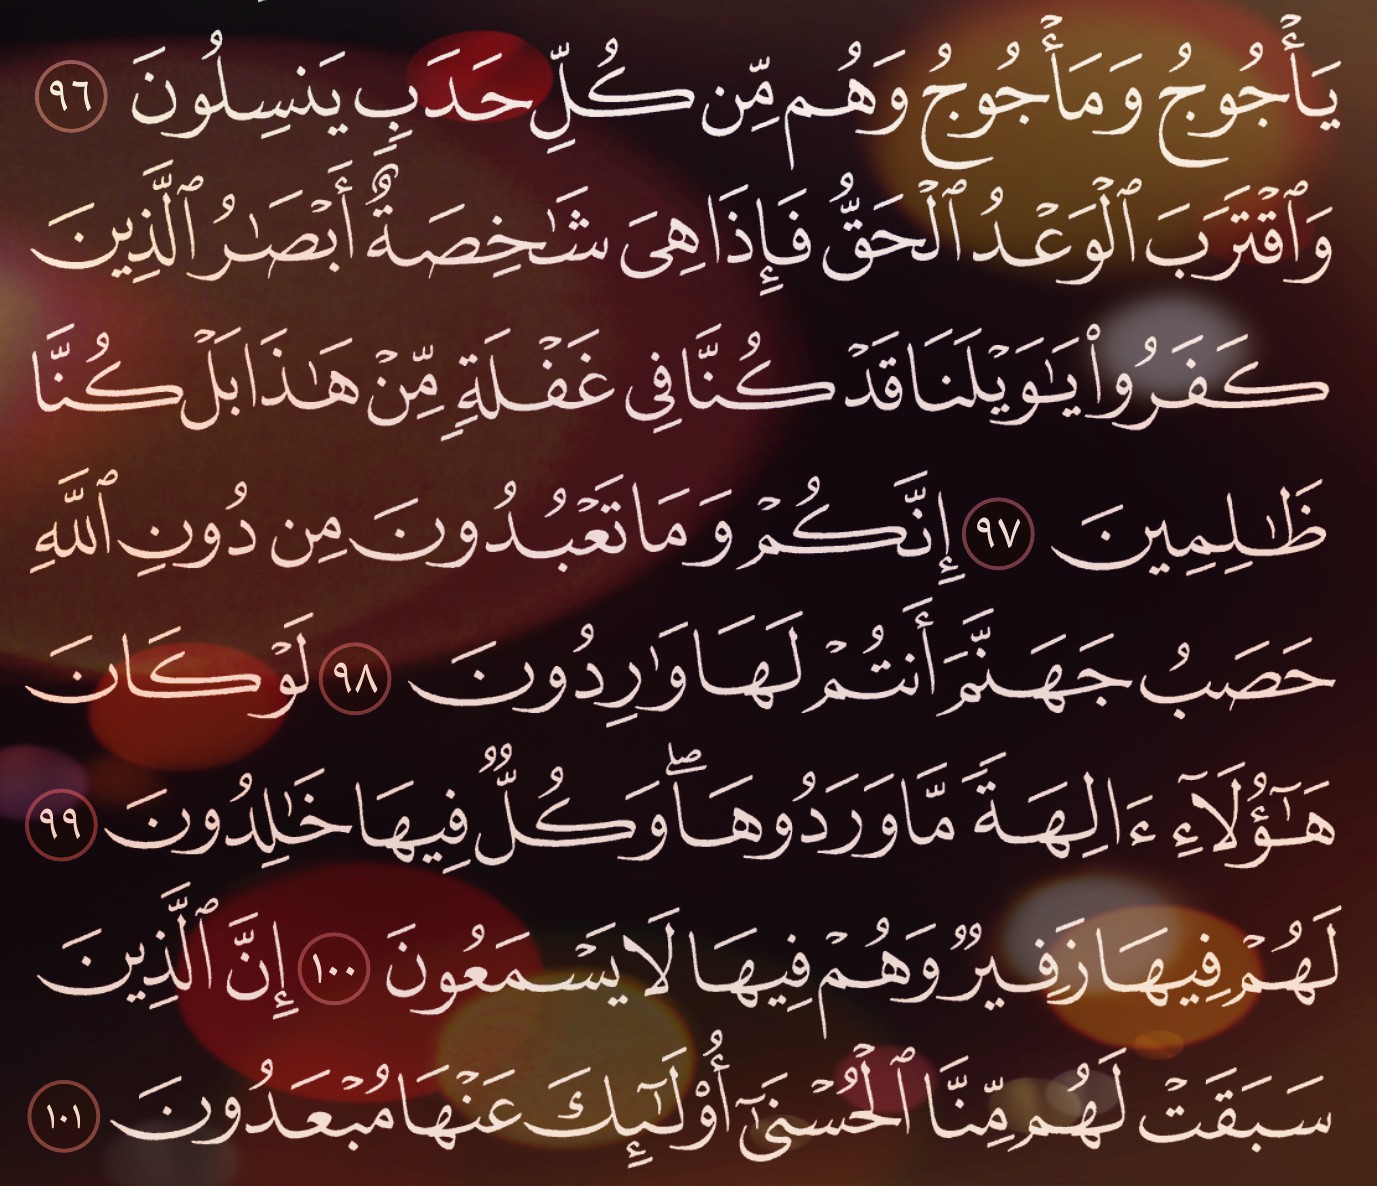 يَأْجُوجُ وَمَأْجُوجُ وَهُم مِّن كُلِّ حَدَبٍ يَنسِلُونَ ٩٦
وَٱقْتَرَبَ ٱلْوَعْدُ ٱلْحَقُّ فَإِذَا هِىَ شَـٰخِصَةٌ أَبْصَـٰرُ ٱلَّذِينَ
كَفَرُوا۟ يَـٰوَيْلَنَا قَدْ كُنَّا فِى غَفْلَةٍ مِّنْ هَـٰذَا بَلْ كُنَّا
ظَـٰلِمِينَ ٩٧ إِنَّكُمْ وَمَا تَعْبُدُونَ مِن دُونِ ٱللَّهِ
حَصَبُ جَهَنَّمَ أَنتُمْ لَهَا وَٰرِدُونَ ٩٨ لَوْ كَانَ
هَـٰٓؤُلَآءِ ءَالِهَةً مَّا وَرَدُوهَا ۖ وَكُلٌّ فِيهَا خَـٰلِدُونَ ٩٩
لَهُمْ فِيهَا زَفِيرٌ وَهُمْ فِيهَا لَا يَسْمَعُونَ ١٠٠ إِنَّ ٱلَّذِينَ
سَبَقَتْ لَهُم مِّنَّا ٱلْحُسْنَىٰٓ أُو۟لَـٰٓئِكَ عَنْهَا مُبْعَدُونَ ١٠١